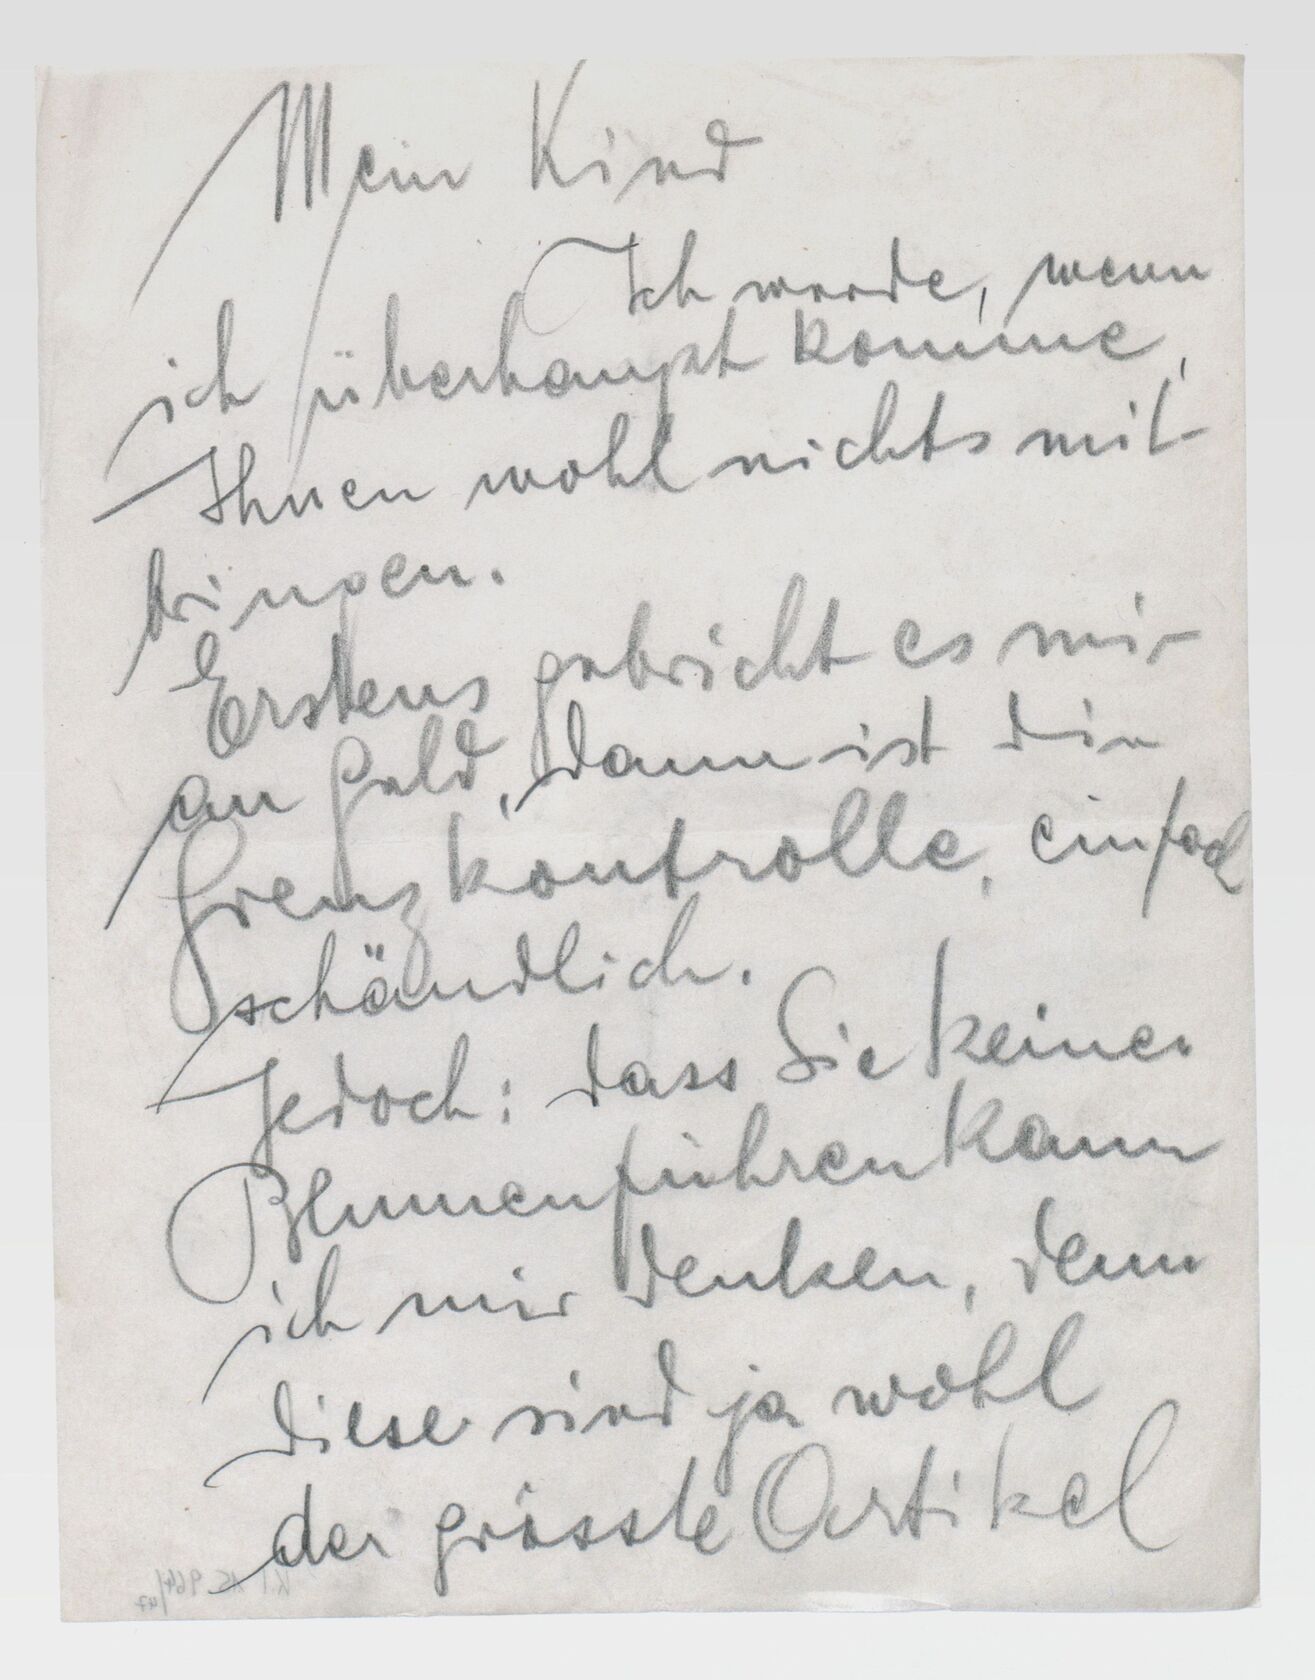 Mein Kind
Ich werde, wenn
ich überhaupt komme,
Ihnen wohl nichts mit
bringen.
Erstens gebricht es mir
an Geld, dann ist die
Grenzkontrolle, einfach
schändlich.
Jedoch: dass Sie keine
Blumen führen kann
ich mir denken, denn
diese sind ja wohl
der grösste Artikel